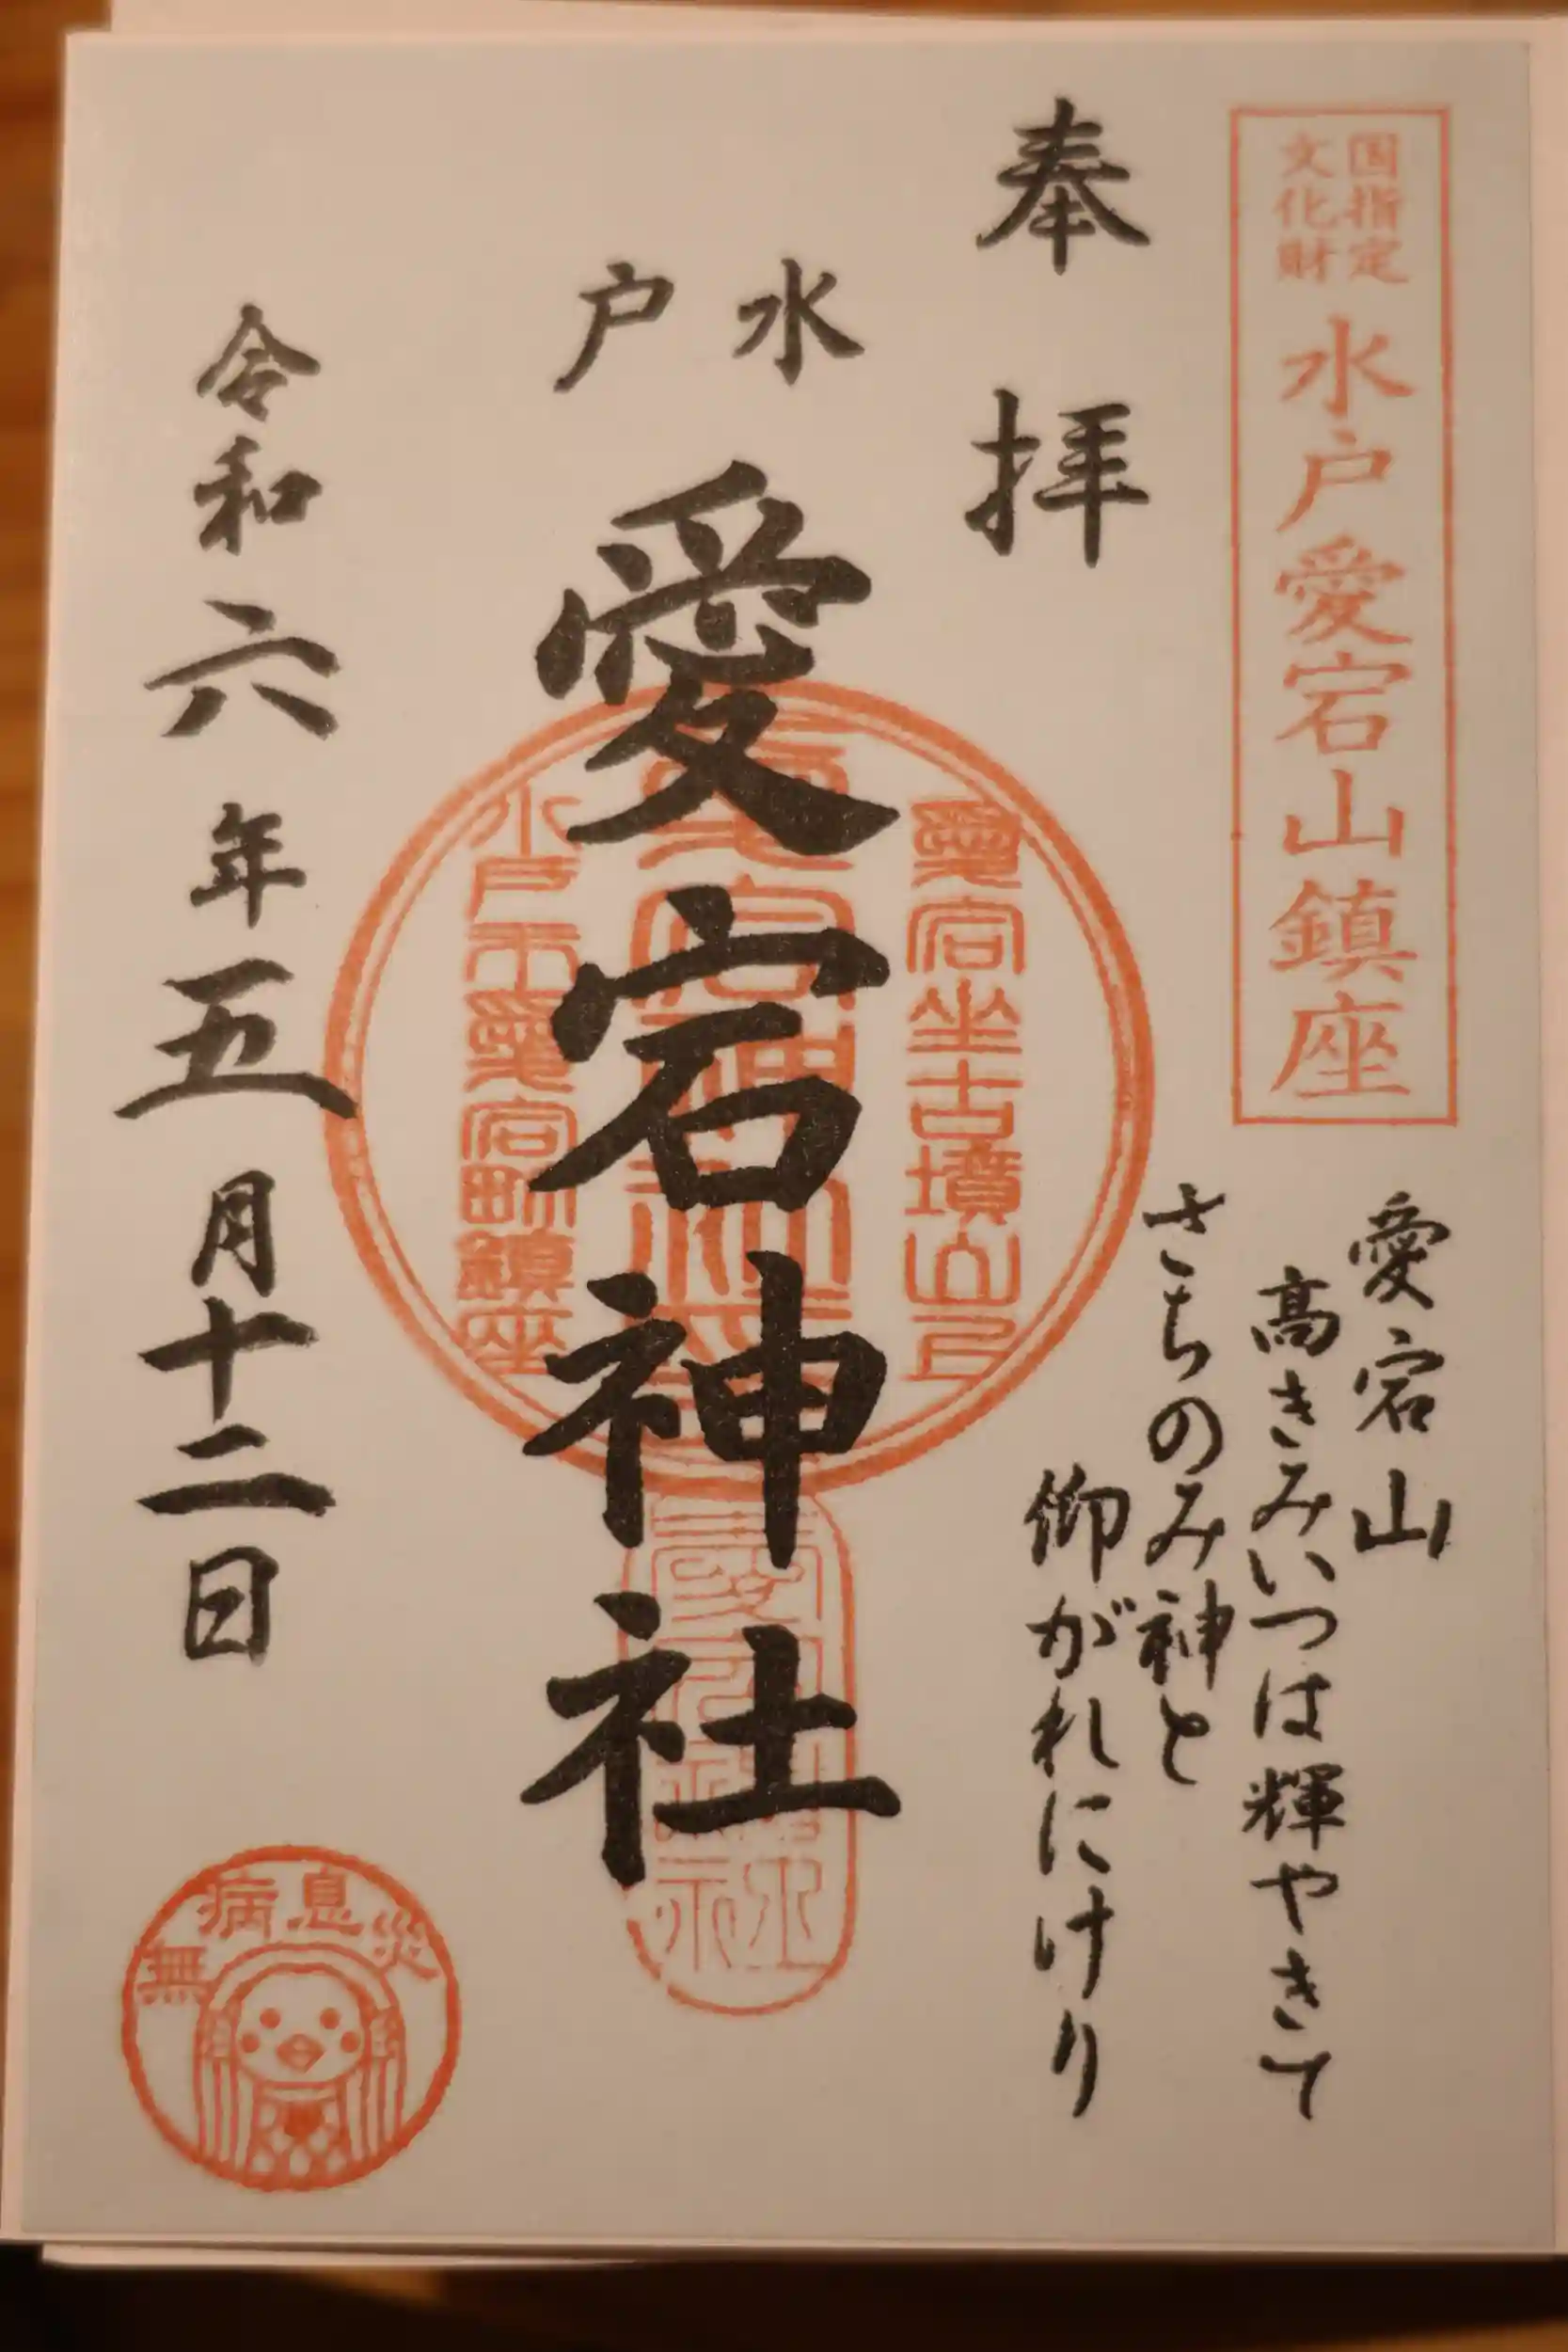 国指定
文化財
水戸愛宕山鎮座
奉拝
愛宕山
高きみいつは輝やきて
さちのみ神と
仰がれにけり
水戸
愛宕神社
愛宕坐古墳山上
水戸市愛宕町鎮座
令和六年五月十二日
無病息災